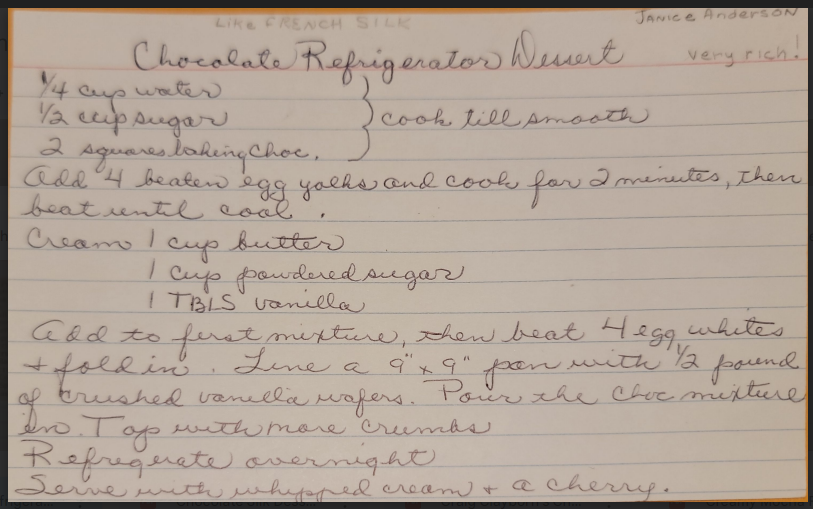 LIKE FRENCH SILK
Janice Anderson
Chocolate Refrigerator Dessert
very rich!
1/4 cup water
1/2 cup sugar } cook till smooth
2 squares baking choc.
Add 4 beaten egg yolks and cook for 2 minutes, then
beat until cool.
Cream 1 cup butter
1 cup powdered sugar
1 TBLS vanilla
Add to first mixture, then beat 4 egg whites
+ fold in. Line a 9" x 9" pan with 1/2 pound
of crushed vanilla wafers. Pour the choc mixture
in. Top with more crumbs
Refrigerate overnight
Serve with whipped cream + a cherry.